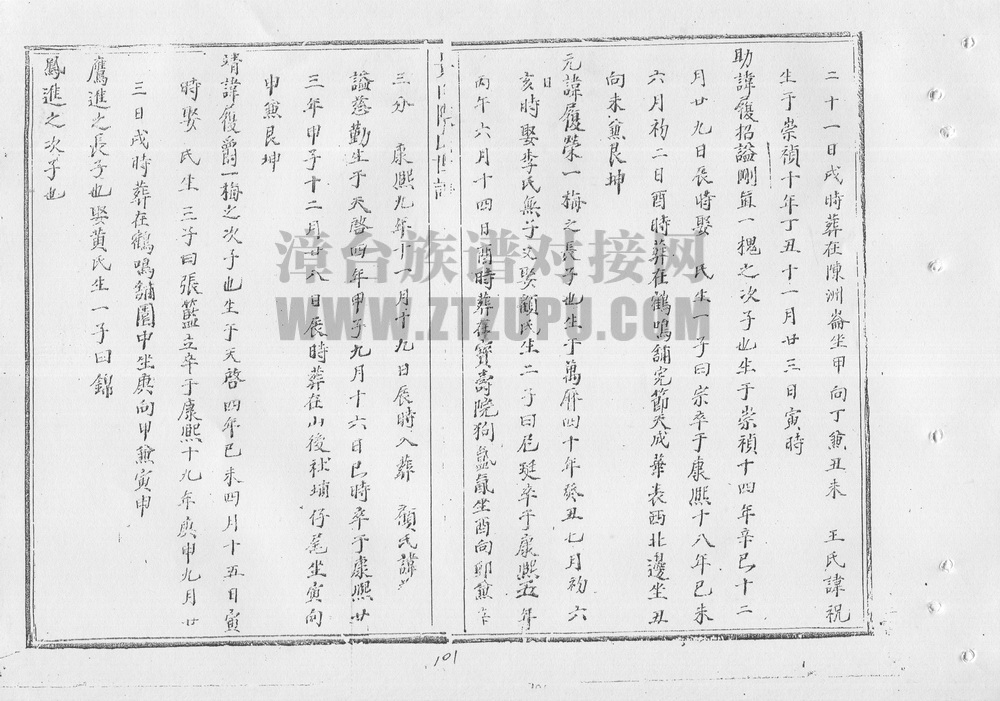 二十一日戌時葬在陳洲崙坐甲向丁兼丑未 王氏諱祝
生于崇禎十年丁丑十一月廿三日寅時
助諱履招謚剛氣一槐之次子也生于崇禎十四年辛巳十二
月廿九日長時娶 氏生一子曰宗卒于康熙十八年己未
六月初二日酉時葬在鶴鳴舖完節天成華表西北邊坐丑
向未兼艮坤
元諱履榮一梅之長子也生于萬曆四十年癸丑七月初六
日
亥時娶李氏無子又娶顏氏生二子曰 卒于康熙五年
丙午六月十四日酉時葬在寶壽院狗氳氤坐酉向卯兼
三分 康熙九年十一月十九日辰時入葬 顏氏諱
謚慈勤生于天啓四年甲子九月十六日巳時卒于康熙廿
三年甲子十二月廿八日辰時葬在山後 埔仔尾坐寅向
申兼艮坤
靖諱履爵一梅之次子也生于天啓四年己未四月十五日寅
時娶 氏生三子曰張籃立卒于康熙十九年庚申九月廿
三日戌時葬在鶴鳴舖園中坐庚向甲兼寅申
鷹進之長子也娶黃氏生一子曰錦
鳳進之次子也
漳台族谱对接网
WWW.ZTZUPU.COM
101